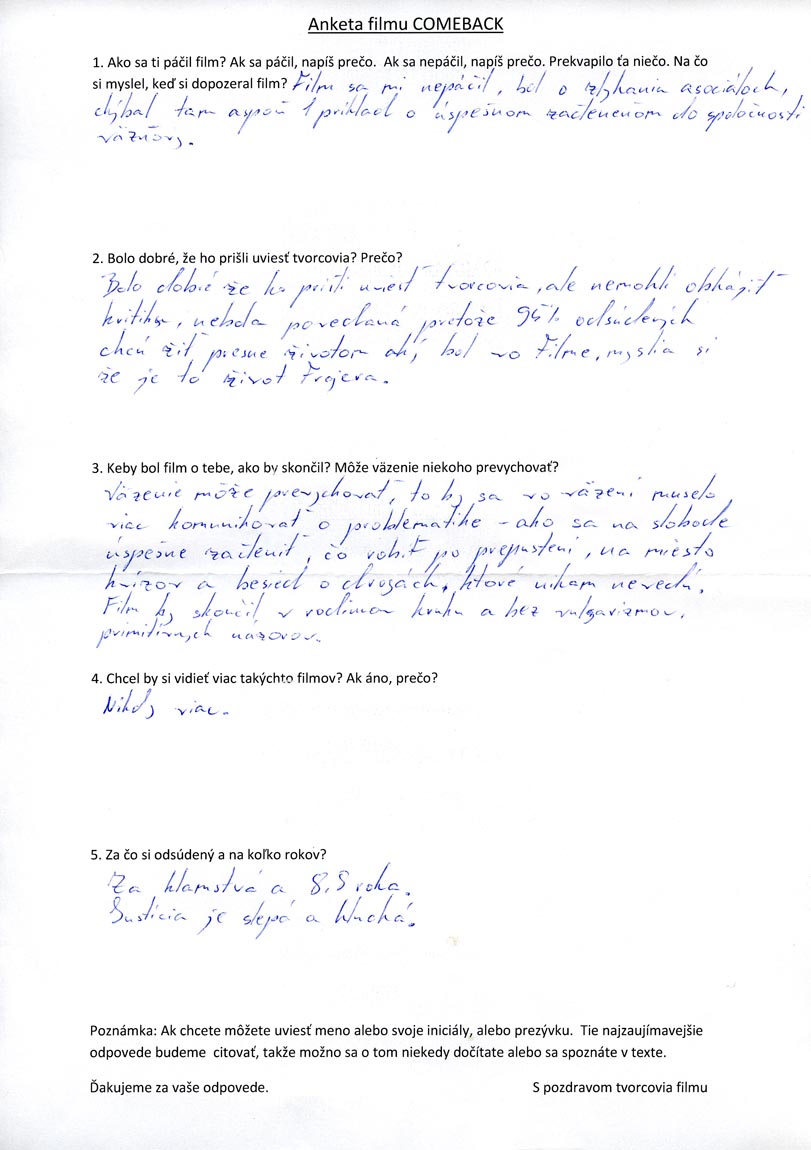 Anketa filmu COMEBACK
1. Ako sa ti páčil film? Ak sa páčil, napíš prečo. Ak sa nepáčil, napíš prečo. Prekvapilo ťa niečo. Na čo
si myslel, keď si dopozeral film? Film sa mi nepáčil, bol o zlyhania asociáloch,
chýbal tam aspoň 1 príklad o úspešnom začlenenom do spoločnosti
väzňov.
2. Bolo dobré, že ho prišli uviesť tvorcovia? Prečo?
Bolo dobré že ho prišli uviesť tvorcovia, ale nemohli obhájiť
kritiku, nebola povedaná pretože 95% odsúdených
chcú žiť presne životom aký bol vo Filme, myslia si
že je to život Frajera.
3. Keby bol film o tebe, ako by skončil? Môže väzenie niekoho prevychovať?
Väzenie môže prevychovať, to by sa vo väzení muselo
viac komunikovať o problematike - ako sa na slobode
úspešne začleniť, čo robiť po prepustení, na miesto
kvízov a besied o drogách, ktoré nikam nevedú.
Film by skončil v rodinom kruhu a bez vulgarizmov,
primitívnych názorov.
4. Chcel by si vidieť viac takýchto filmov? Ak áno, prečo?
Nikdy viac.
5. Za čo si odsúdený a na koľko rokov?
Za klamstvá a 8,5 roka.
Justícia je slepá a hluchá.
Poznámka: Ak chcete môžete uviesť meno alebo svoje iniciály, alebo prezývku. Tie najzaujímavejšie
odpovede budeme citovať, takže možno sa o tom niekedy dočítate alebo sa spoznáte v texte.
Ďakujeme za vaše odpovede. S pozdravom tvorcovia filmu